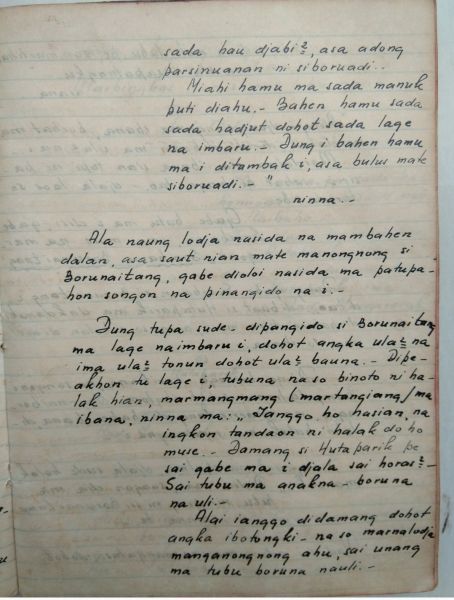 sada hau djabi², asa adong
parsinuanan ni siboruadi..
Miahi hamu ma sada manuk
puti diahu.- Bahen hamu sada
sada hadjut dohot sada lage
na imbaru.- Dung i bahen hamu
ma i ditambak i, asa bulus mate
siboruadi.- "
ninna.-
Ala naung lodja nasida na mambahen
dalan, asa saut nian mate manongnong si
Borunaitang, gabe dioloi nasida ma patupa-
hon songon na pinangido na i.-
Dung tupa sude- dipangido si Borunaitang
ma lage naimbaru i, dohot angka ula² na
ima ula² tonun dohot ula² bauna.- Dipe-
akhon tu lage i, tubuna na so binoto ni ha-
lak hian, marmangmang (martangiang) ma
ibana, ninna ma: „Ianggo ho hasian, na
ingkon tandaon ni halak do ho
muse.- Damang si Hutaparik pe
sai gabe ma i djala sai horas²-
Sai tubu ma anakna- boruna
na uli.-
Alai ianggo didamang dohot
angka ibotongki- na so marnalodja
manganongnong ahu, sai unang
ma tubu boruna nauli.-